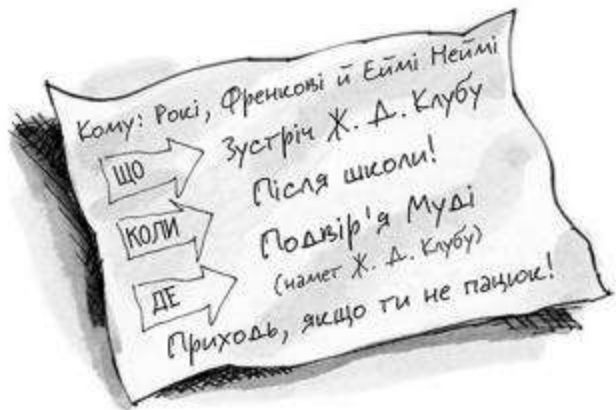 Кому: Рокі, Френкові й Еймі Неймі
ЩО Зустріч Ж. Д. Клубу
КОЛИ Після школи!
ДЕ Подвір'я Муді
(намет Ж. Д. Клубу)
Приходь, якщо ти не пацюк!